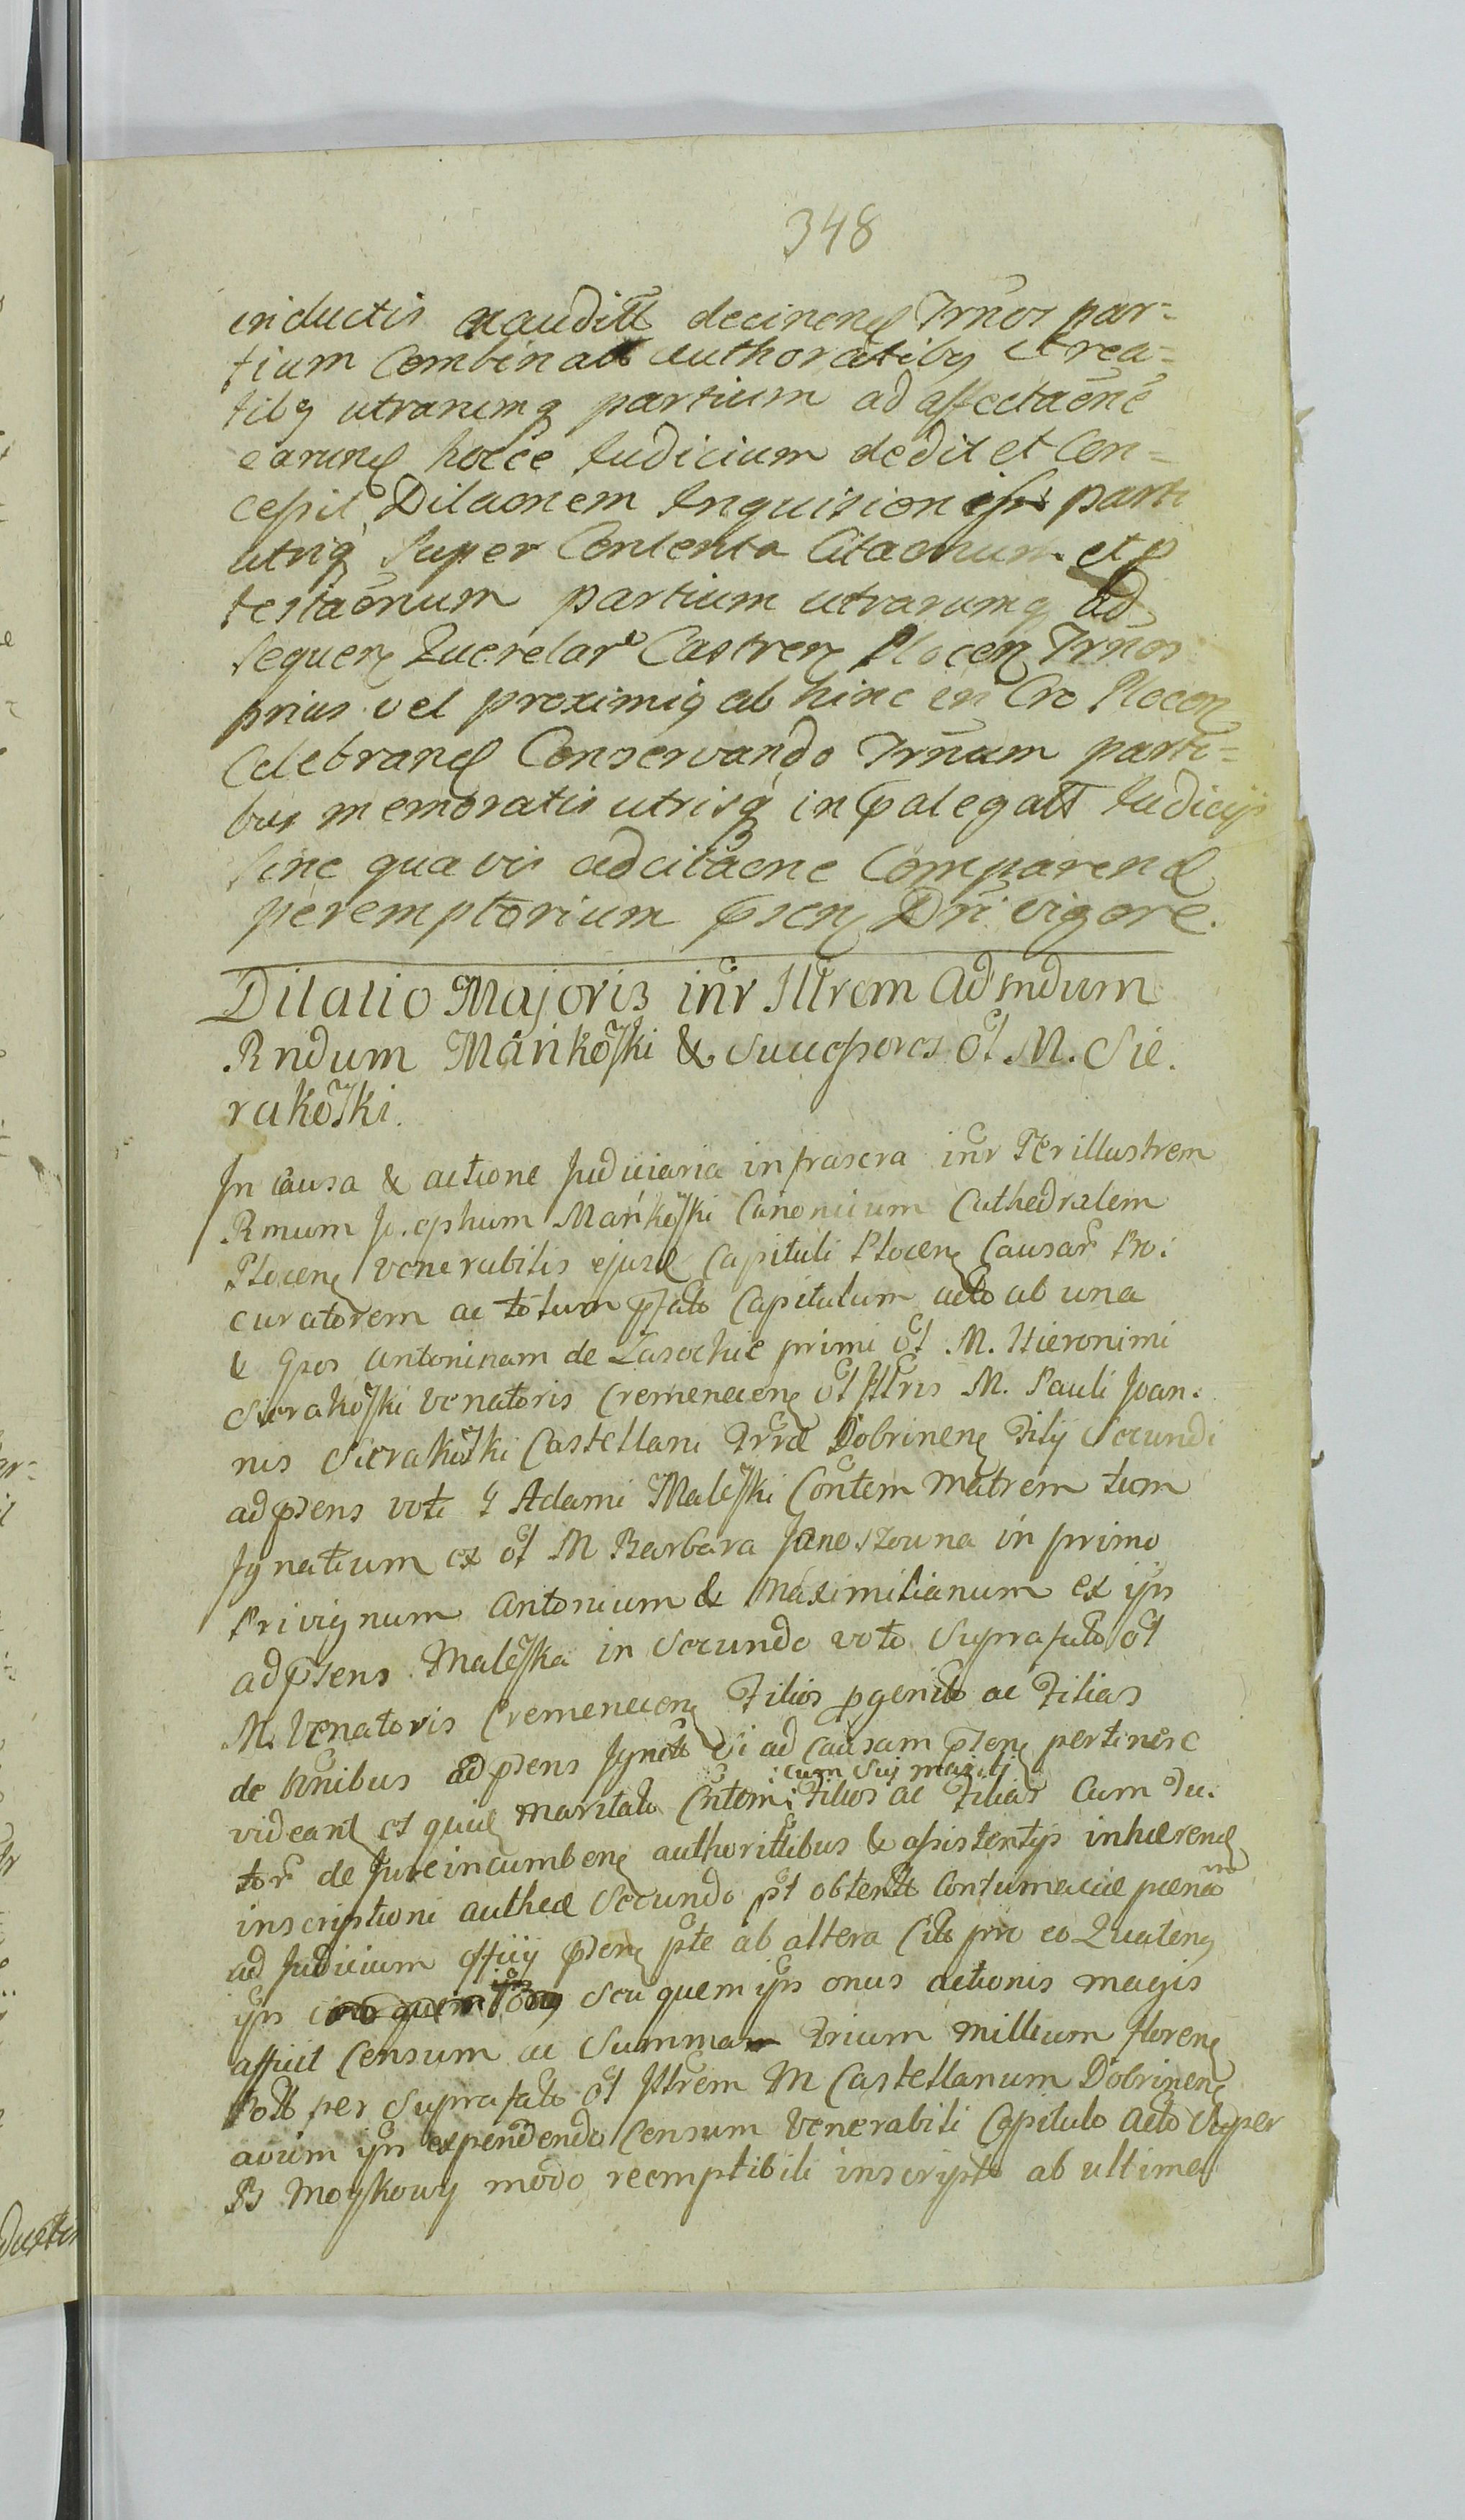 348
inductis exauditt decinend Trnos par=
tium Combinatt authoratibq et rea=
tibq utrarumq partium ad affectaōnē
earund hocce Judicium dedit et Con=
cessit Dilaōnem Inquisitionis parti
utriq Super Contenta Citaonum et p
testaōnum partium utrarumq ad
sequen Querelare Castren Plocen Trnos
prius vel proximiq ab hinc in Cro Plocen
Celebrand Conservando Trnum parti=
bus memoratis utrisq in pralegatt Judicijs
sine quavis adcitaōne Comparend
peremptorium psen Dri vigore.
Dilatio Majoris intr Illrem Admdum
Rndum Mańkoski & Successores olt M. Sie.
rakoski.
In causa & actione Judiciaria infrascra intr Perillustrem
Rmum Josephum Mańkoski Canonicum Cathedralem
Plocen venerabilis ejusd Capituli Plocen Causar Pro:
curatorem ac totum pfato Capitulum acto ab una
& Gsos Antoninam de Lasochie primi olt M. Hieronimi
Sierakoski Venatoris Cremenecen olt Illris M. Pauli Joan.
nis Sierakoski Castellani Trræ Dobrinen Filij Secundi
ad psens voti G Adami Maleski Contem Matrem tum
Ignatium ex olt M Barbara Janoszouna in primo
Privignum Antonium & Maximilianum ex ipsa
ad psens Maleska in Secundo voto Suprafato olt
M. Venatoris Cremenecen Filios pgenito ac Filias
de Nnibus ad psens Ignott Si ad Causam psen pertinere
cum suis maritis
videant et quid maritata Cntem: Filios ac Filias Cum Tu.
tor de Jure incumben authorittibus & assistentijs inhærend
inscriptioni authcæ Secundo pt obtentt Contumaciæ pœna
ad Judicium officij psen pte ab altera Cito pro eo Quateng
ipsi seu quem ipsi onus actionis magis
afficit Censum ac Summam Trium Millium floren
Poll per Suprafato olt Illrem M Castellanum Dobrinen
avum ipsi expendendo Censum Venerabili Capitulo acto Super
B Moyskowy modo reemptibili inscripto ab ultima